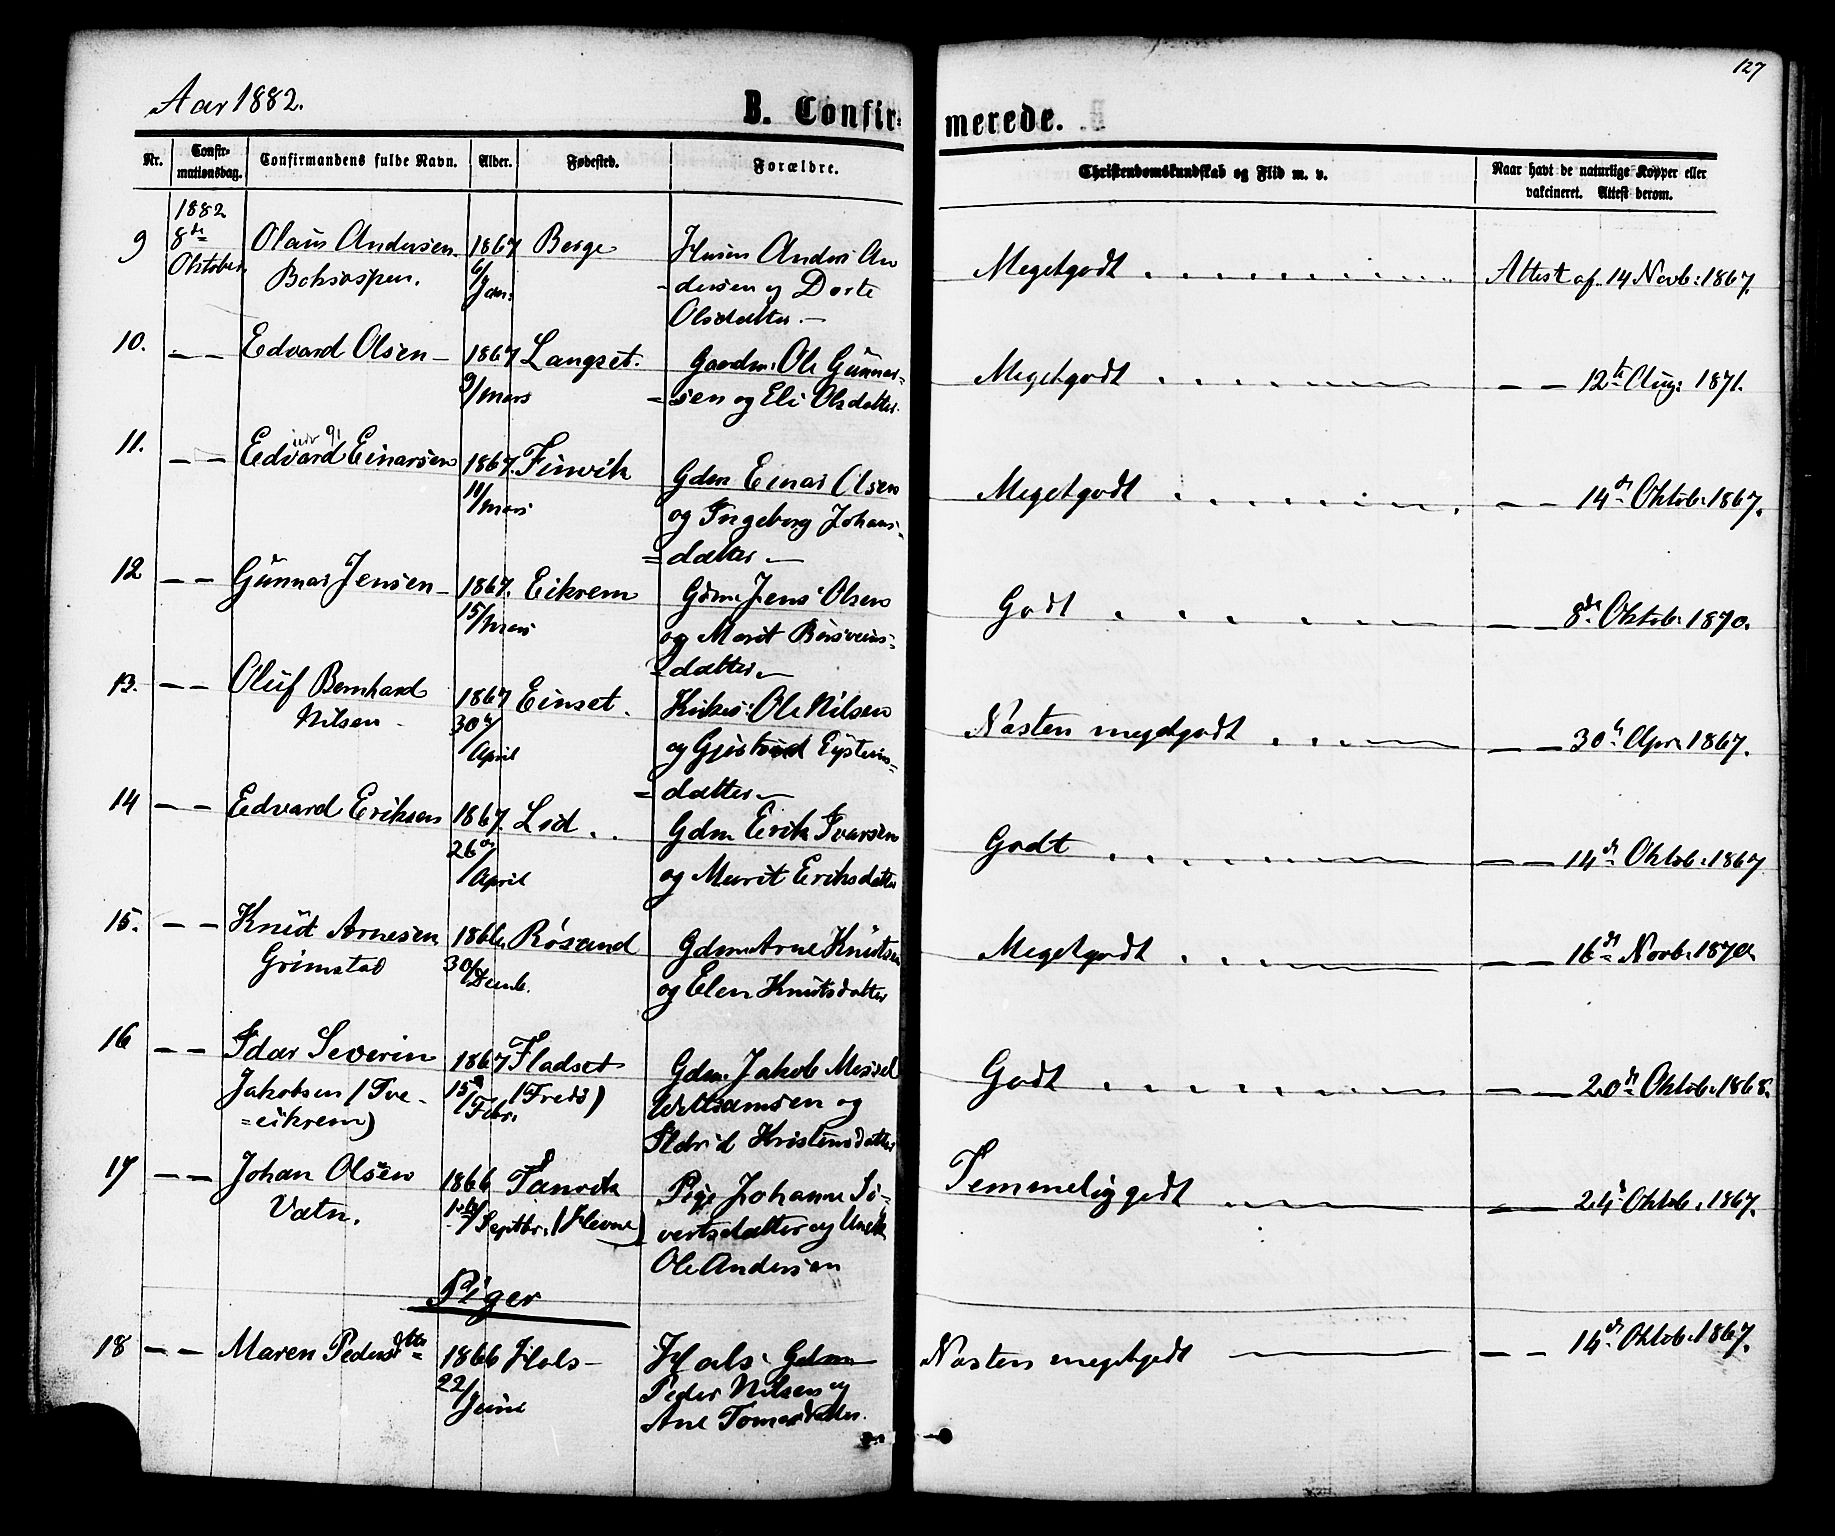 127
Aar 1882.
B. Confir-
merede.
Nr.
Confir-
mationsdag.
Confirmandens fulde Navn.
Alder.
Fødested.
Forældre.
Christendomskundskab og Flid m. v.
Naar havt de naturlige Kopper eller
vakcineret. Attest derom.
9
1882
8de
Oktober
Olaus Andersen
1867
6/Jan:
Berge
Anders An
dersen og Dorte
Olsdatter.
Megetgodt
Attest af 14 Novb: 1867.
10.
— —
Edvard Olsen
1867
9/mars
Langset.
Gaardm: Ole Gunnar-
sen og Eli Olsdatter.
Megetgodt
— — 12te Aug: 1871.
11.
— —
Edvard Einarsen
1867.
11/mars
Finvik
Gdm Einar Olsen
og Ingeborg Johans-
datter
Megetgodt
— — 14de Oktob. 1867.
12
— —
Gunnar Jensen
1867.
15/mars
Eikrem
Gdm. Jens Olsen
og Marit
datter
Godt
— — 8de Oktob. 1870.
13.
— —
Oluf Bernhard
Nilsen
1867
30/April
Einset.
Ole Nilsen
og Gjertrud Eysteins-
datter
Næsten megetgodt
— — 30te Apr. 1867.
14
— —
Edvard Eriksen
1867.
26/April
Lid
Gdm Erik Ivarsen
og Marit Eriksdatter
Godt
— — 14de Oktob. 1867
15.
— —
Knud Arnesen
Grimstad
1866.
30/Decemb.
Røsand
Gdm. Arne Knutsen
og Elen Knutsdatter
Megetgodt
— — 16de Novb. 1870
16
— —
Idar Severin
Jakobsen (Tve-
eikrem)
1867
15/Febr.
Fladset
(Fredø)
Gdm. Jakob
og
Ildrid Kristensdatter
Godt
— — 20de Oktob. 1868.
17
— —
Johan Olsen
Vatn.
1866
/Septbr.
(Hevne)
Pige Johanne Si-
vertsdatter og Unek
Ole Andersen
Temmeliggodt
— — 24de Oktob. 1867.
Piger
18
— —
Maren Pedersdtr
1866
22/Juni
Hals
Hals Gdm
Peder Nilsen og
Ane
Næsten megetgodt
— — 14de Oktob. 1867.